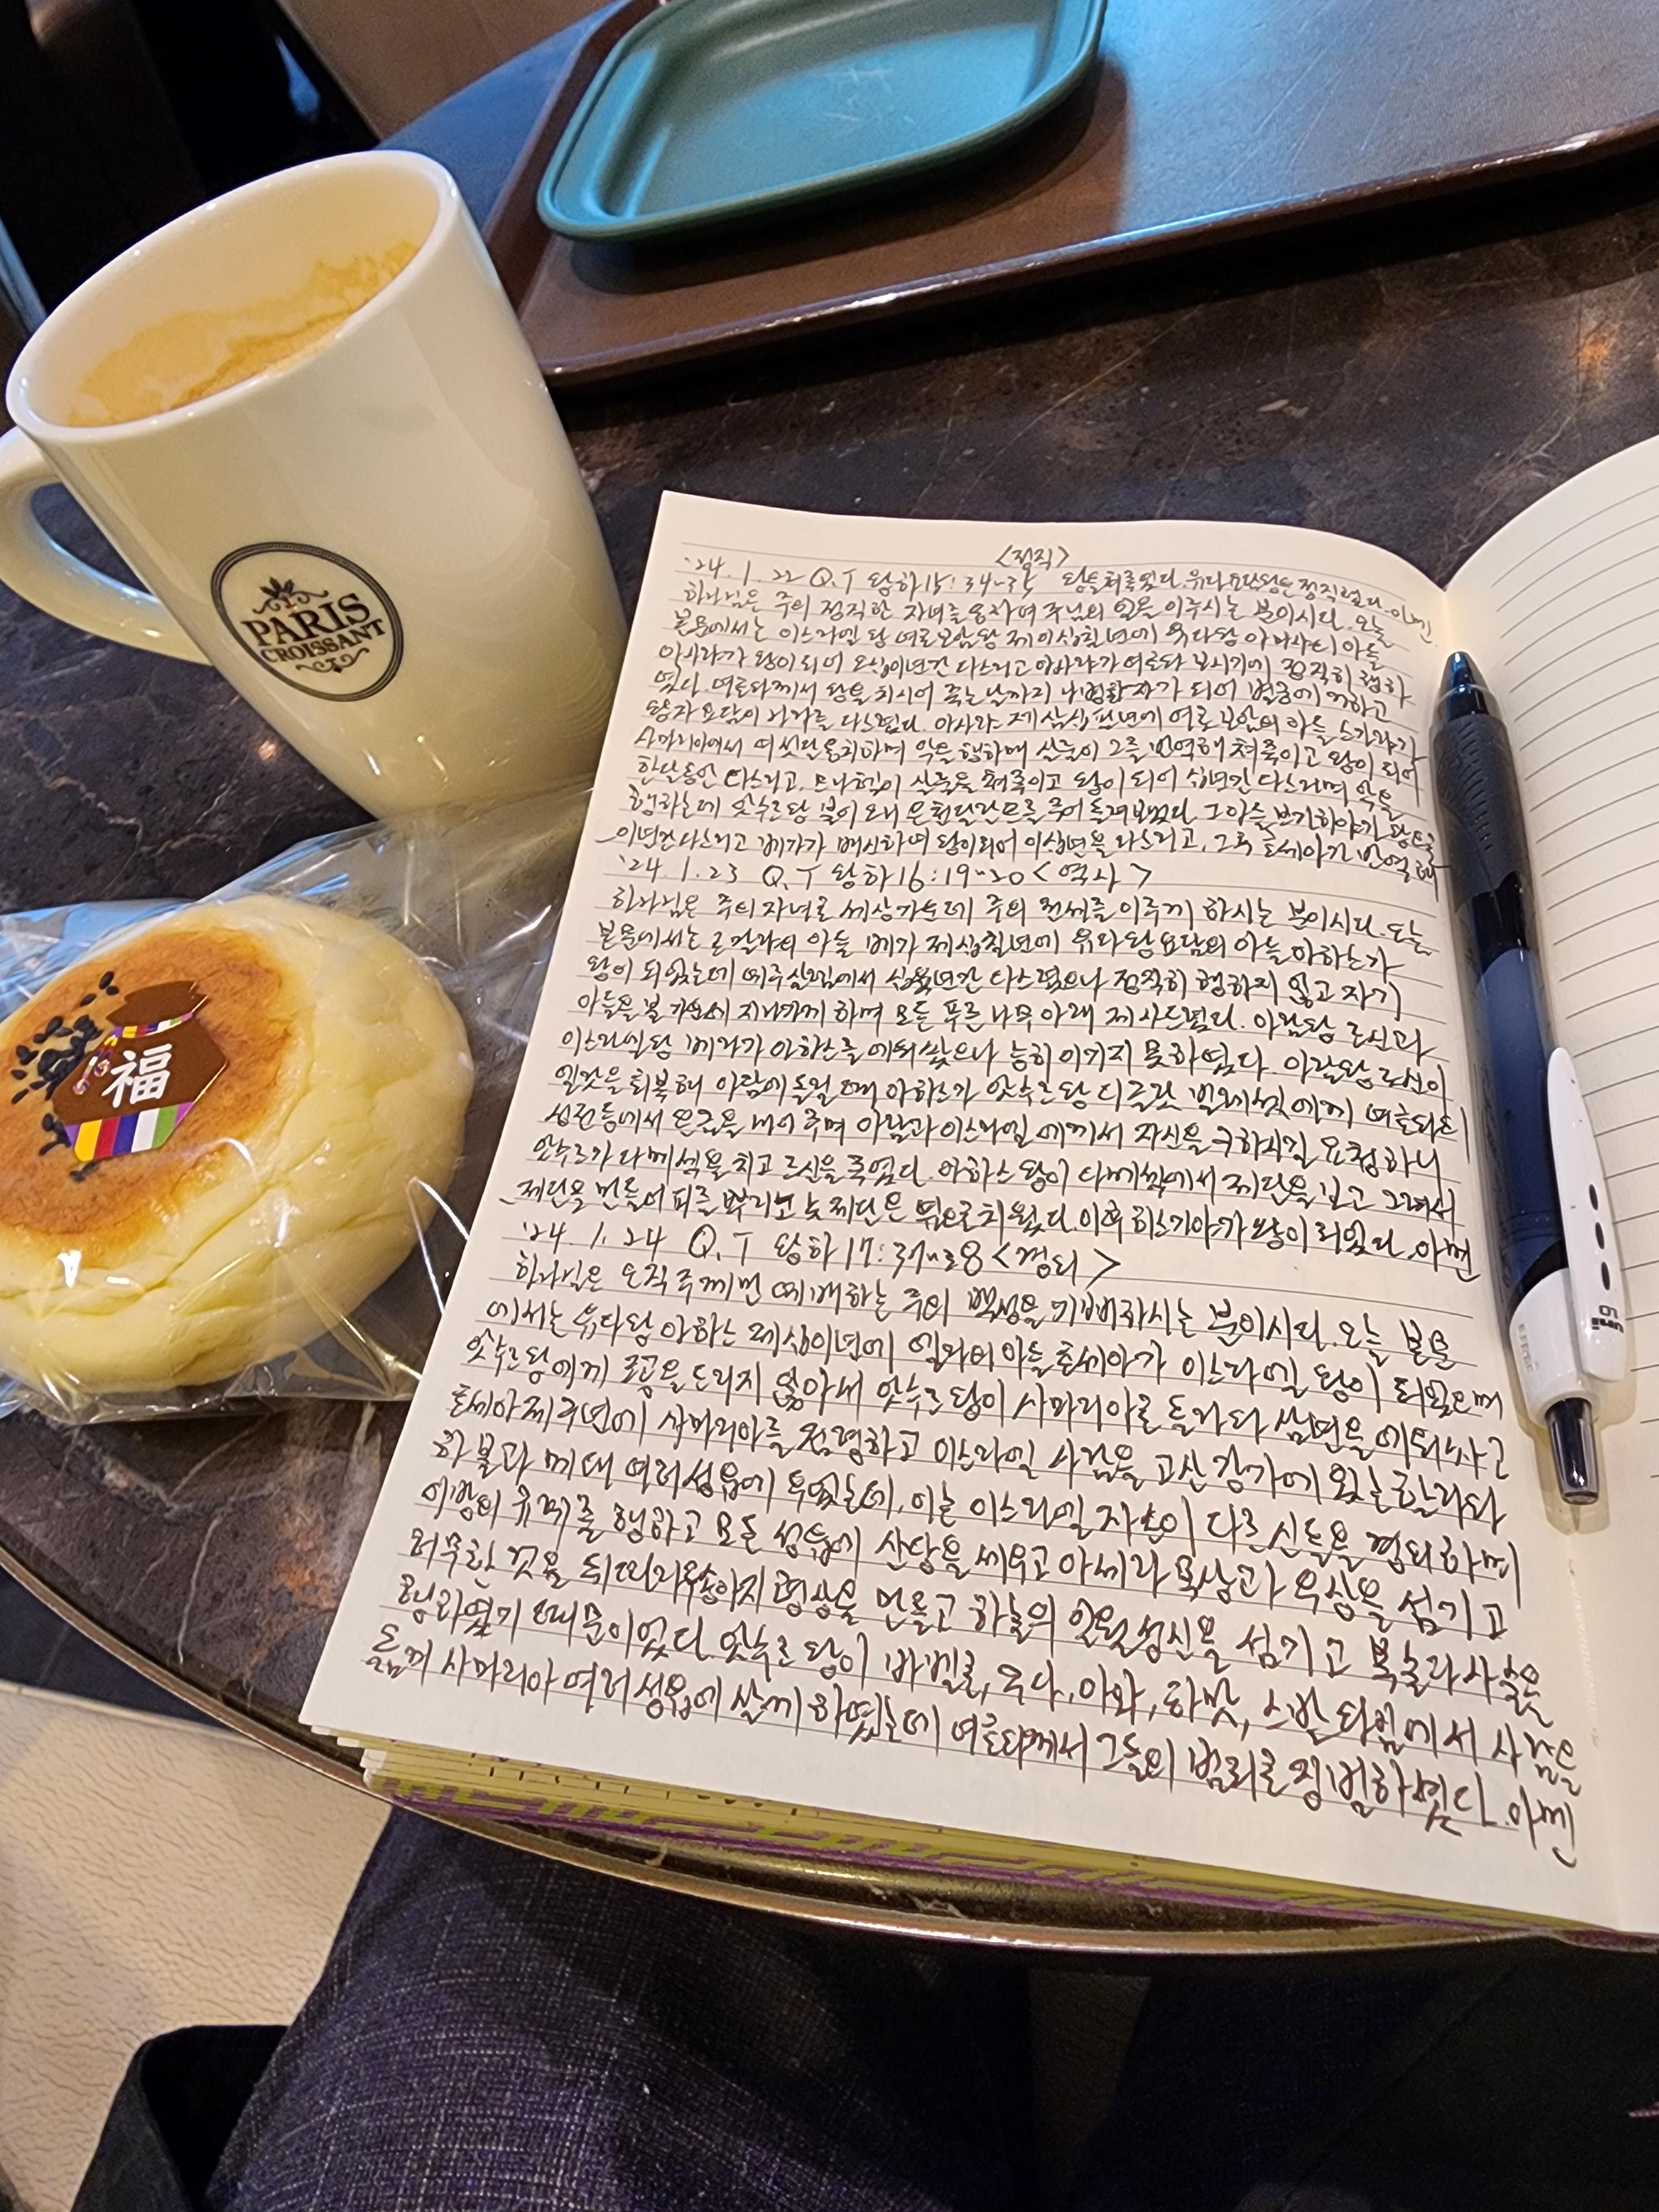 PARIS
CROISSANT
福
<정직>
'24. 1. 22 Q.T 왕하 15:34-35 유다 요담왕은 정직했다. 아멘
하나님은 주의 정직한 자녀를 통하여 주님의 일을 이루시는 분이시다. 오늘
본문에서는 이스라엘 왕 여로보암 왕 제이십칠년에 유다왕 아마샤의 아들
아사랴가 왕이 되어 오십이년간 다스리고 아사랴가 여호와 보시기에 정직히 행하
였다. 여호와께서 왕을 치시어 죽는 날까지 나병환자가 되어 별궁에 거하고
왕자 요담이 나라를 다스렸다. 아사랴 제삼십팔년에 여로보암의 아들 스가랴가
사마리아에서 여섯달을 치하며 악을 행하매 살룸이 그를 반역해 쳐죽이고 왕이 되어
한달동안 다스리고, 므나헴이 살룸을 쳐죽이고 왕이 되어 십년간 다스리며 악을
행하는데 앗수르 왕 불이 오매 은 천달란트를 주어 돌려보냈다. 그 아들 브가히야가 왕으로
이년간 다스리고 베가가 배신하여 왕이되어 이십년을 다스리고, 그 후 호세아가 반역해
'24. 1. 23 Q.T 왕하 16:19-20 <역사>
하나님은 주의 자녀로 세상가운데 주의 뜻을 이루게 하시는 분이시다. 오늘
본문에서는 르말랴의 아들 베가 제십칠년에 유다왕 요담의 아들 아하스가
왕이 되었는데 예루살렘에서 십육년간 다스렸으나 정직히 행하지 않고 자기
아들을 불 가운데 지나가게 하며 모든 푸른 나무 아래 제사드렸다. 아람왕 르신과
이스라엘왕 베가가 아하스를 에워쌌으나 능히 이기지 못하였다. 아람왕 르신이
엘랏을 회복해 아람에 돌릴 때 아하스가 앗수르 왕 디글랏 빌레셀에게 여호와의
성전 등에서 은금을 내어 주며 아람과 이스라엘에게서 자신을 구하시길 요청하니
앗수르가 다메섹을 치고 르신을 죽였다. 아하스 왕이 다메섹에서 제단을 보고 그려서
제단을 만들어 피를 뿌리고 놋제단은 뒤로 치웠다. 이후 히스기야가 왕이 되었다. 아멘
'24. 1. 24 Q.T 왕하 17:37-38 <경외>
하나님은 오직 주께만 예배하는 주의 백성을 기뻐하시는 분이시다. 오늘 본문
에서는 유다왕 아하스 제십이년에 엘라의 아들 호세아가 이스라엘 왕이 되었으며
앗수르왕에게 조공을 드리지 않아서 앗수르 왕이 사마리아로 올라와 삼년을 에워싸고
호세아 제구년에 사마리아를 점령하고 이스라엘 사람을 고산 강가에 있는 할라와
하볼과 메대 여러 성읍에 두었는데, 이는 이스라엘 자손이 다른 신들을 경외하며
이방의 규례를 행하고 모든 성읍에 산당을 세우고 아세라 목상과 우상을 섬기고
허무한 것을 뒤따라 송아지 형상을 만들고 하늘의 일월성신을 섬기고 복술과 사술을
행하였기 때문이었다. 앗수르 왕이 바벨론, 구다, 아와, 하맛, 스발와임에서 사람을
옮겨 사마리아 여러 성읍에 살게 하였는데 여호와께서 그들의 범죄를 징벌하셨다. 아멘
uni